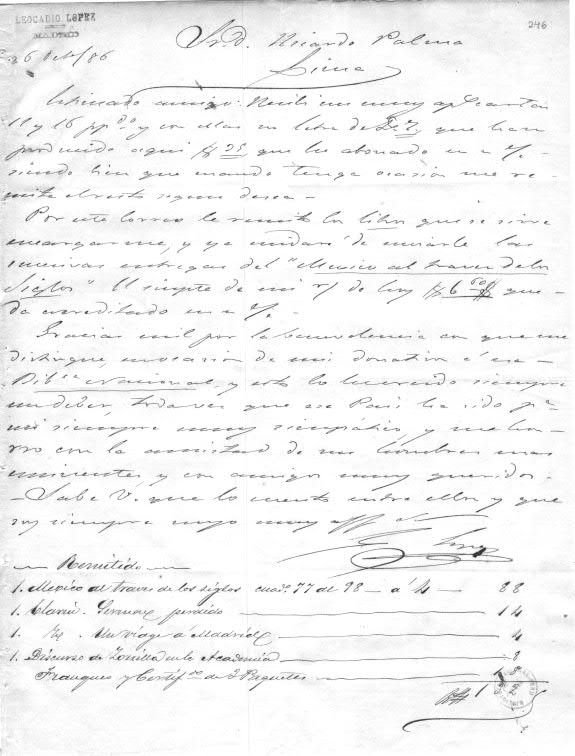 LEOCADIO LOPEZ
MADRID
246
26 /86
Sr. D. Ricardo Palma
Lima
Estimado amigo: Recibí su muy ap. cartas
11 y 16 pp.do y con ellas su letra de que han
producido aqui 25 que he abonado en c/
siendo bien que cuando tenga ocasion me re-
mita el resto segun desea-
Por este correo le remito los libros que se sirve
encargarme, y ya cuidaré de enviarle las
sucesivas entregas del "Mexico al traves de los
Siglos" El importe de mi de hoy 6 que-
da acreditado en c/
Gracias mil por la benevolencia con que me
distingue, en ocasion de mi donativo á esa
Bib.ca Nacional, y esto lo he creido siempre
un deber, toda vez que ese Pais ha sido p.a
mi siempre muy simpatico y me hon-
rro con la amistad de sus hombres mas
eminentes y con amigos muy queridos.
- Sabe V. que lo cuento entre ellos y que
soy siempre suyo muy aff.
L. Lopez
Remitido
1. Mexico al traves de los siglos cuad.s 77 al 98 - á 4 - 88
1. Clarin. Sermon perdido 14
1. Un viage á Madrid 4
1. Discurso de Zorrilla en la Academia 8
Franqueo y Certif.do de 2 Paquetes